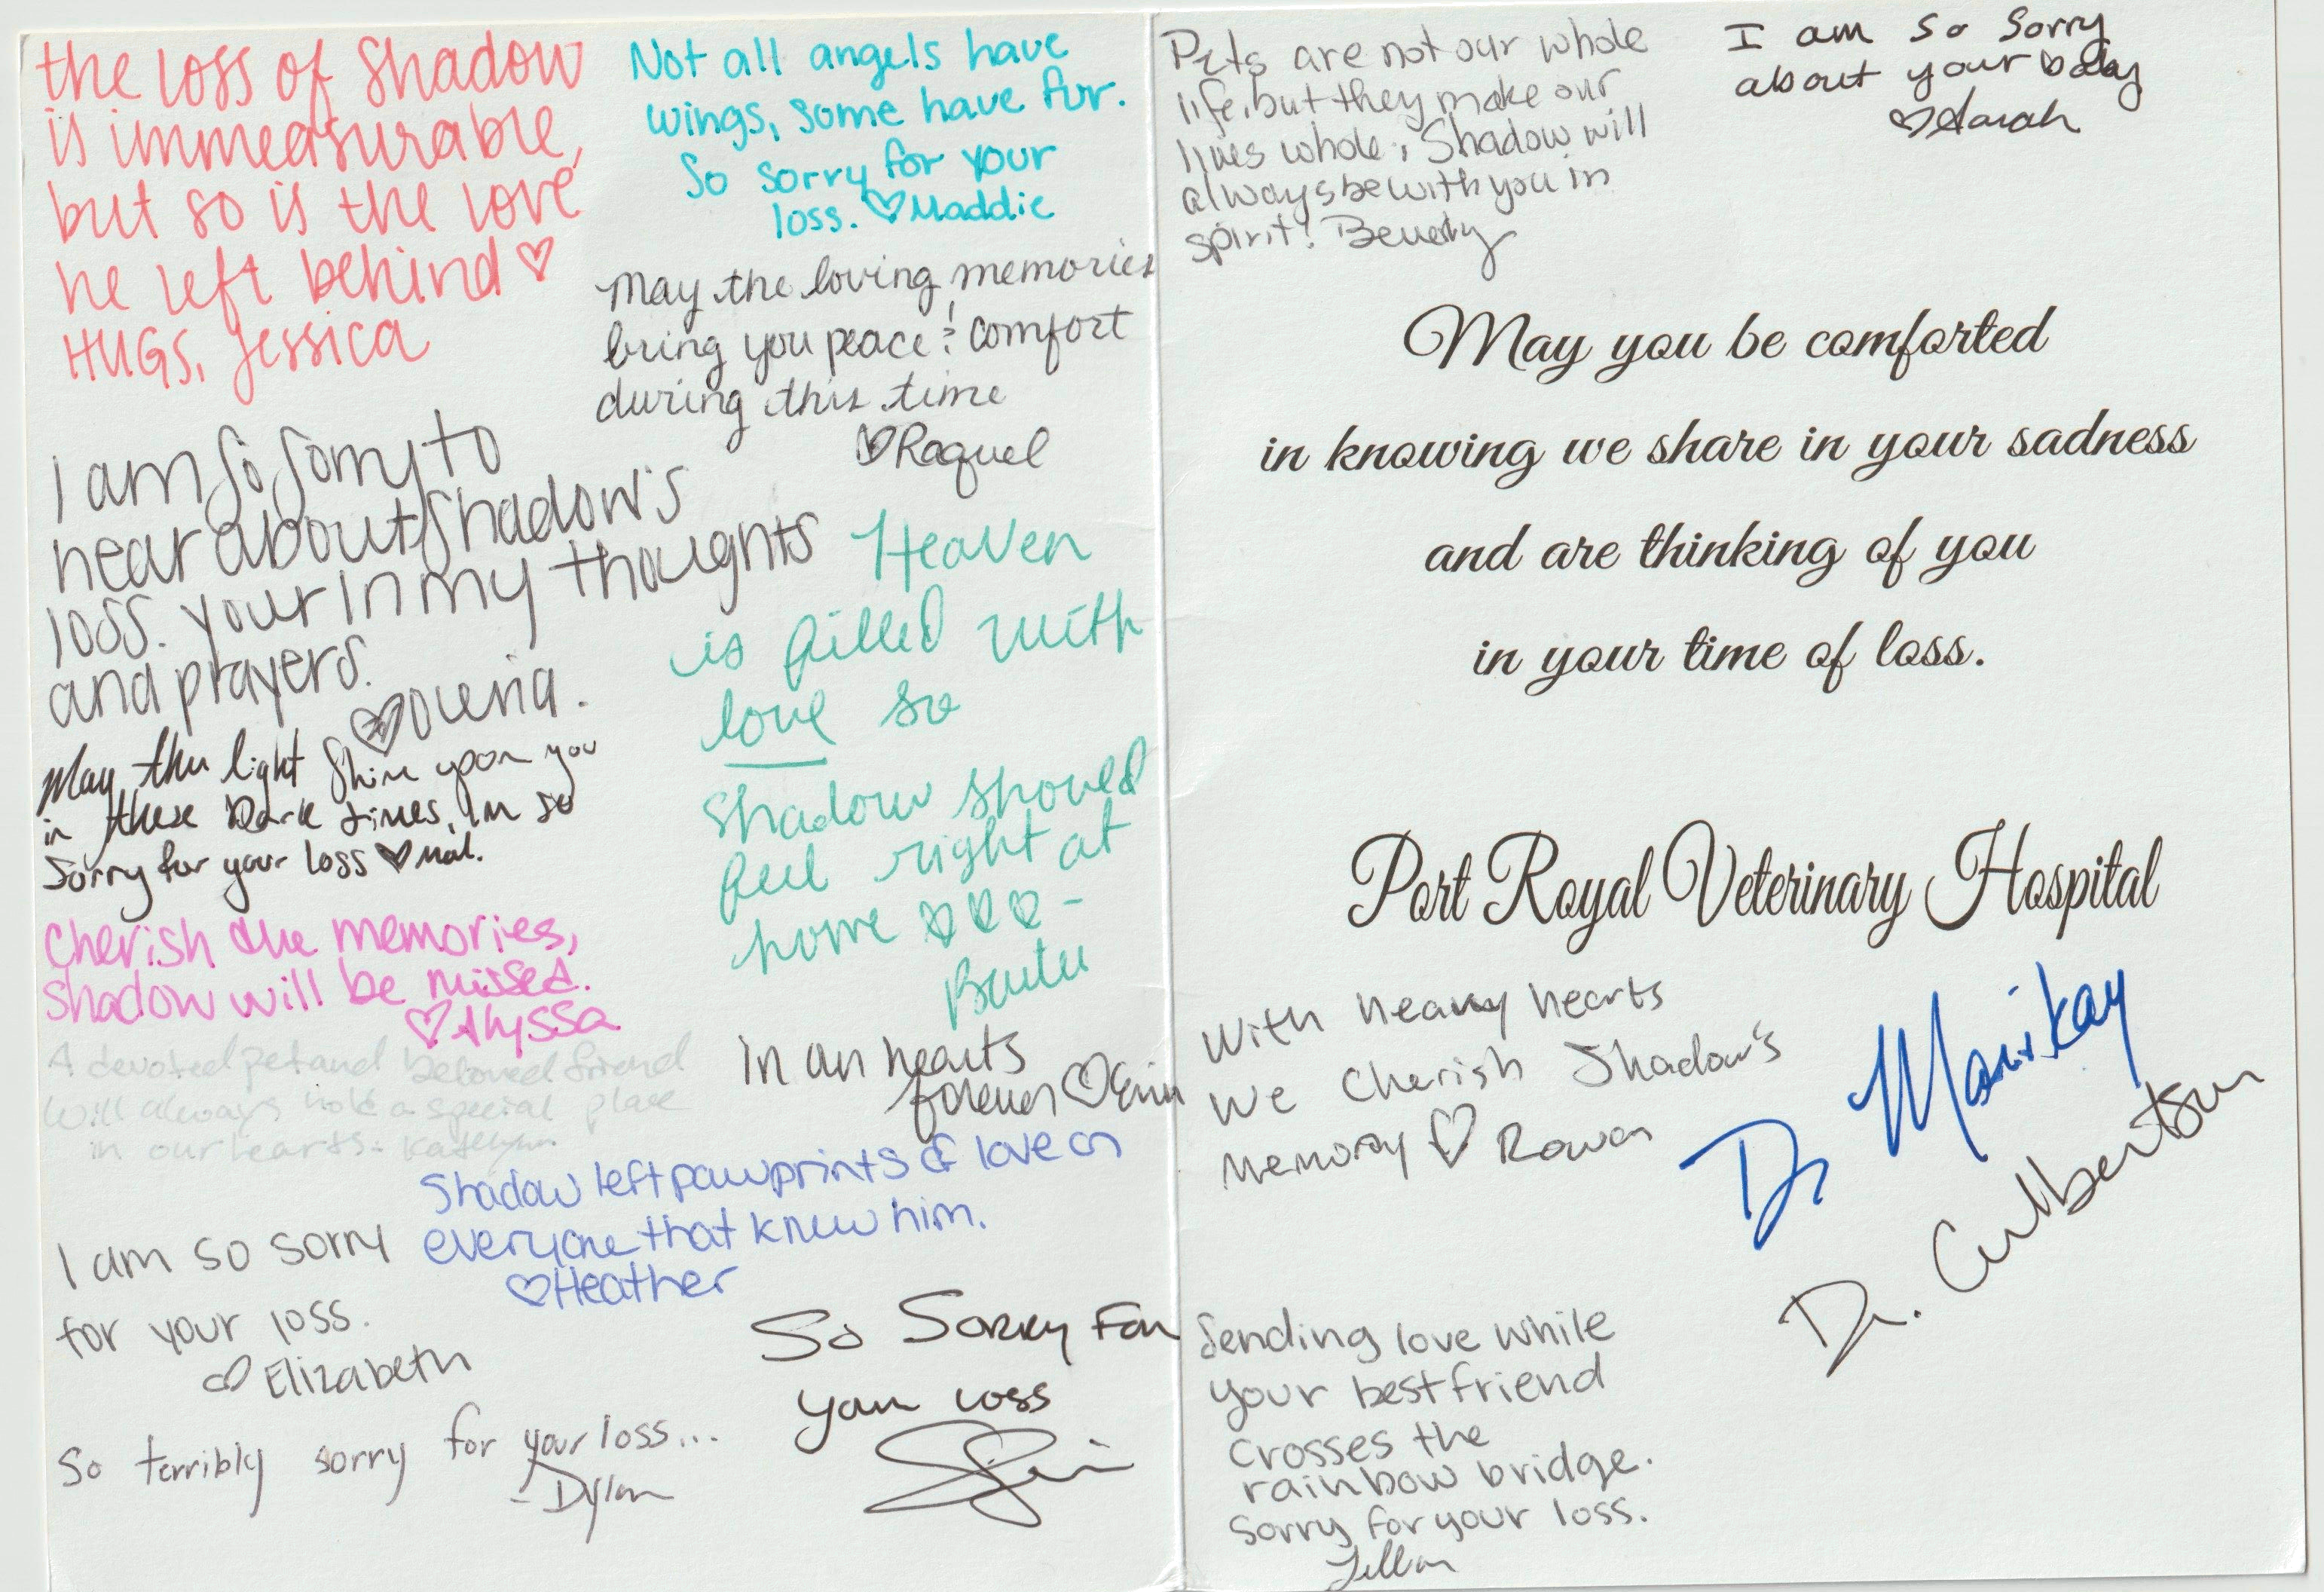 the loss of Shadow
is immeasurable,
but so is the love
he left behind ♡
HUGS, Jessica
Not all angels have
wings, some have fur.
So sorry for your
loss. ♡ Maddie
May the loving memories
bring you peace & comfort
during this time
♡ Raquel
I am so sorry to
hear about Shadow's
loss. your in my thoughts
and prayers.
♡
Heaven
is filled with
love so
Shadow should
feel right at
home ♡♡♡ -
May the light shine upon you
in these Dark times, Im so
Sorry for your loss ♡ Mal.
Cherish the memories,
Shadow will be missed.
♡ Alyssa
A devoted pet and beloved friend
will always hold a special place
in our hearts - Katelynn
In our hearts
forever ♡ Erin
Shadow left pawprints of love on
everyone that knew him.
♡ Heather
I am so sorry
for your loss.
♡ Elizabeth
So Sorry For
your loss
So terribly sorry for your loss...
- Dylan
Pets are not our whole
life, but they make our
lives whole. Shadow will
always be with you in
spirit! Beverly
I am so sorry
about your baby
♡ Sarah
May you be comforted
in knowing we share in your sadness
and are thinking of you
in your time of loss.
Port Royal Veterinary Hospital
With heavy hearts
we cherish Shadow's
memory ♡ Rowan
Dr Marikay
Dr. Culbertson
Sending love while
your best friend
crosses the
rainbow bridge.
Sorry for your loss.